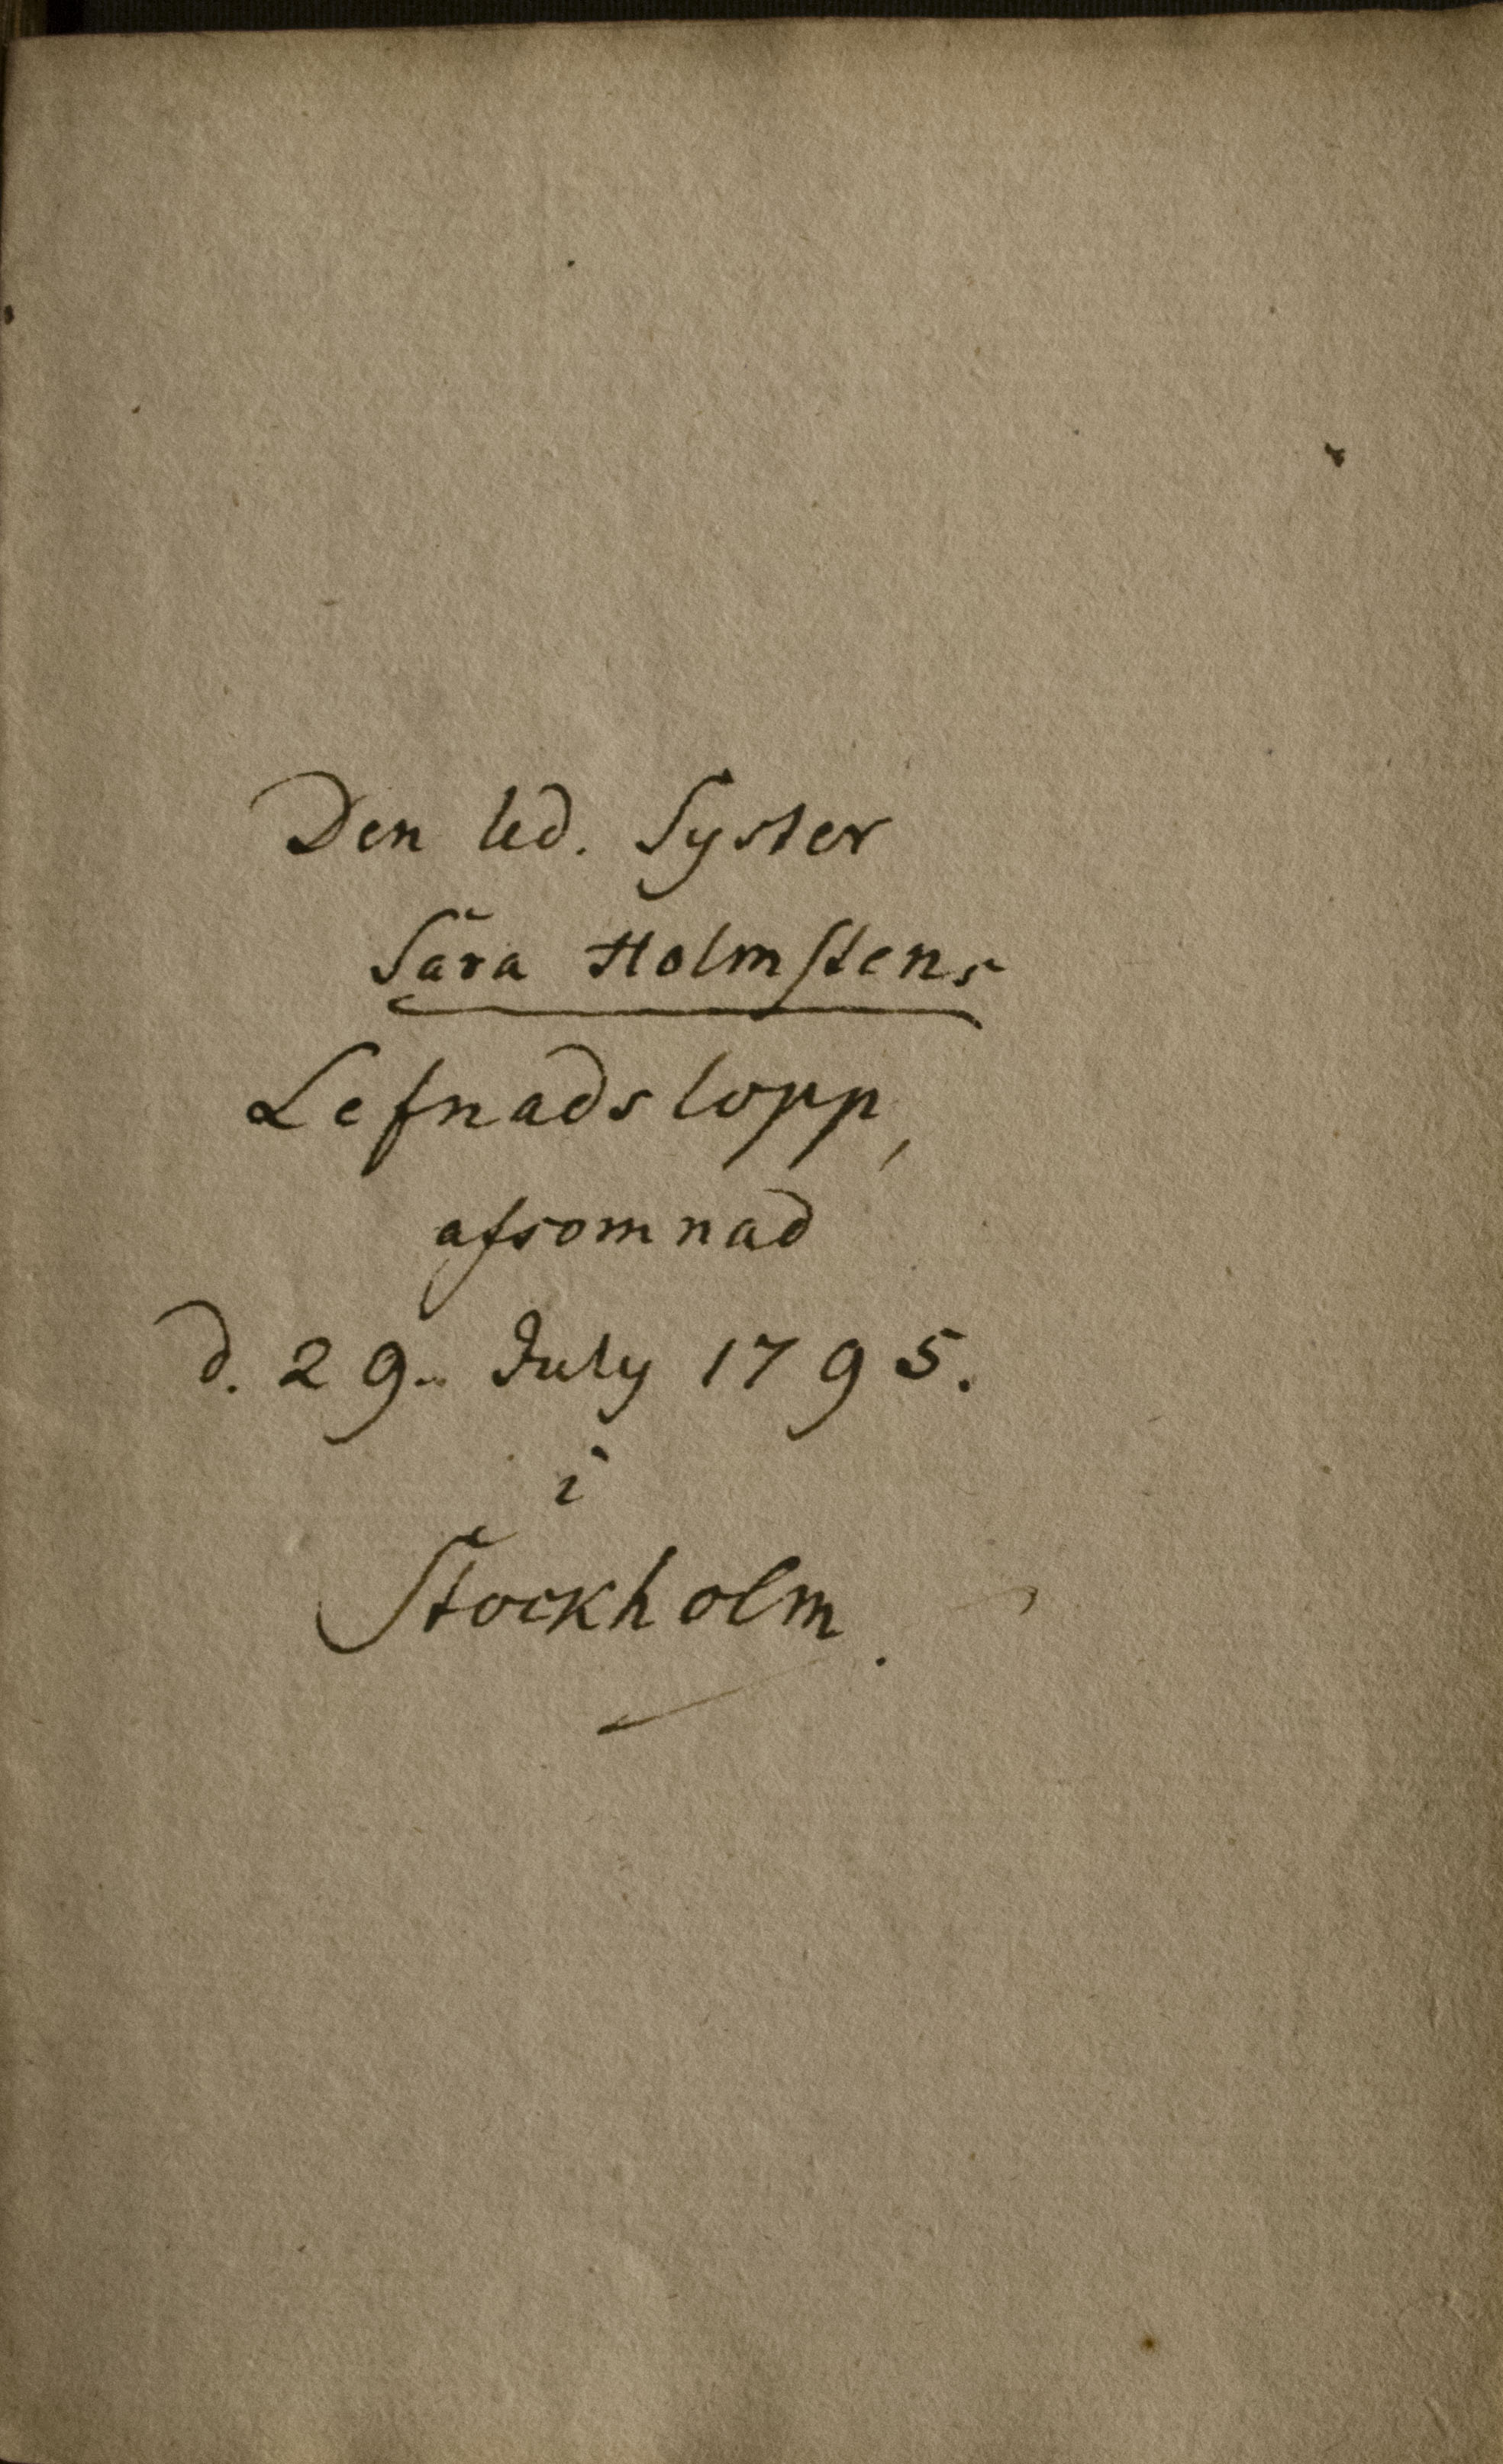 Den led. Syster
Sara Holmstens
Lefnadslopp,
afsomnad
d. 29. July 1795.
i
Stockholm.